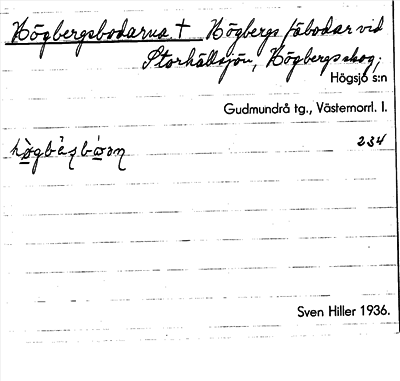 Högbergsbodarna † Högbergs fäbodar vid
Storhällsjön, Högbergs skog;
Högsjö s:n
Gudmundrå tg., Västernorrl. l.
234
Sven Hiller 1936.